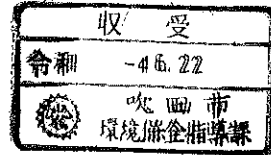 収受
令和 -4.6.22
吹田市
環境保全指導課